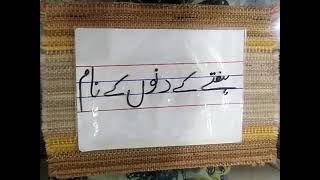 ہفتے کے دنوں کے نام